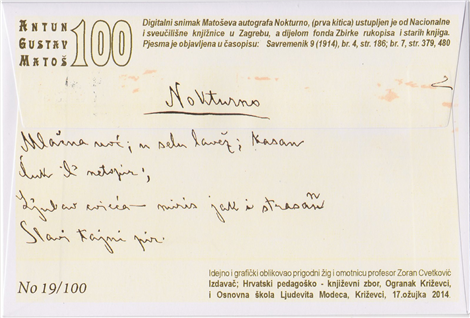 ANTUN
GUSTAV
MATOŠ
100
Digitalni snimak Matoševa autografa Nokturno, (prva kitica) ustupljen je od Nacionalne
i sveučilišne knjižnice u Zagrebu, a dijelom fonda Zbirke rukopisa i starih knjiga.
Pjesma je objavljena u časopisu: Savremenik 9 (1914), br. 4, str. 186; br. 7, str. 379, 480
Nokturno
Mlačna noć; u selu lavež; kasan
Ćuk il' netopir;
Ljubav cvieća – miris jak i strasan
Slavi tajni pir.
Idejno i grafički oblikovao prigodni žig i omotnicu profesor Zoran Cvetković
Izdavač; Hrvatski pedagoško - književni zbor, Ogranak Križevci,
i Osnovna škola Ljudevita Modeca, Križevci, 17.ožujka 2014.
No 19/100